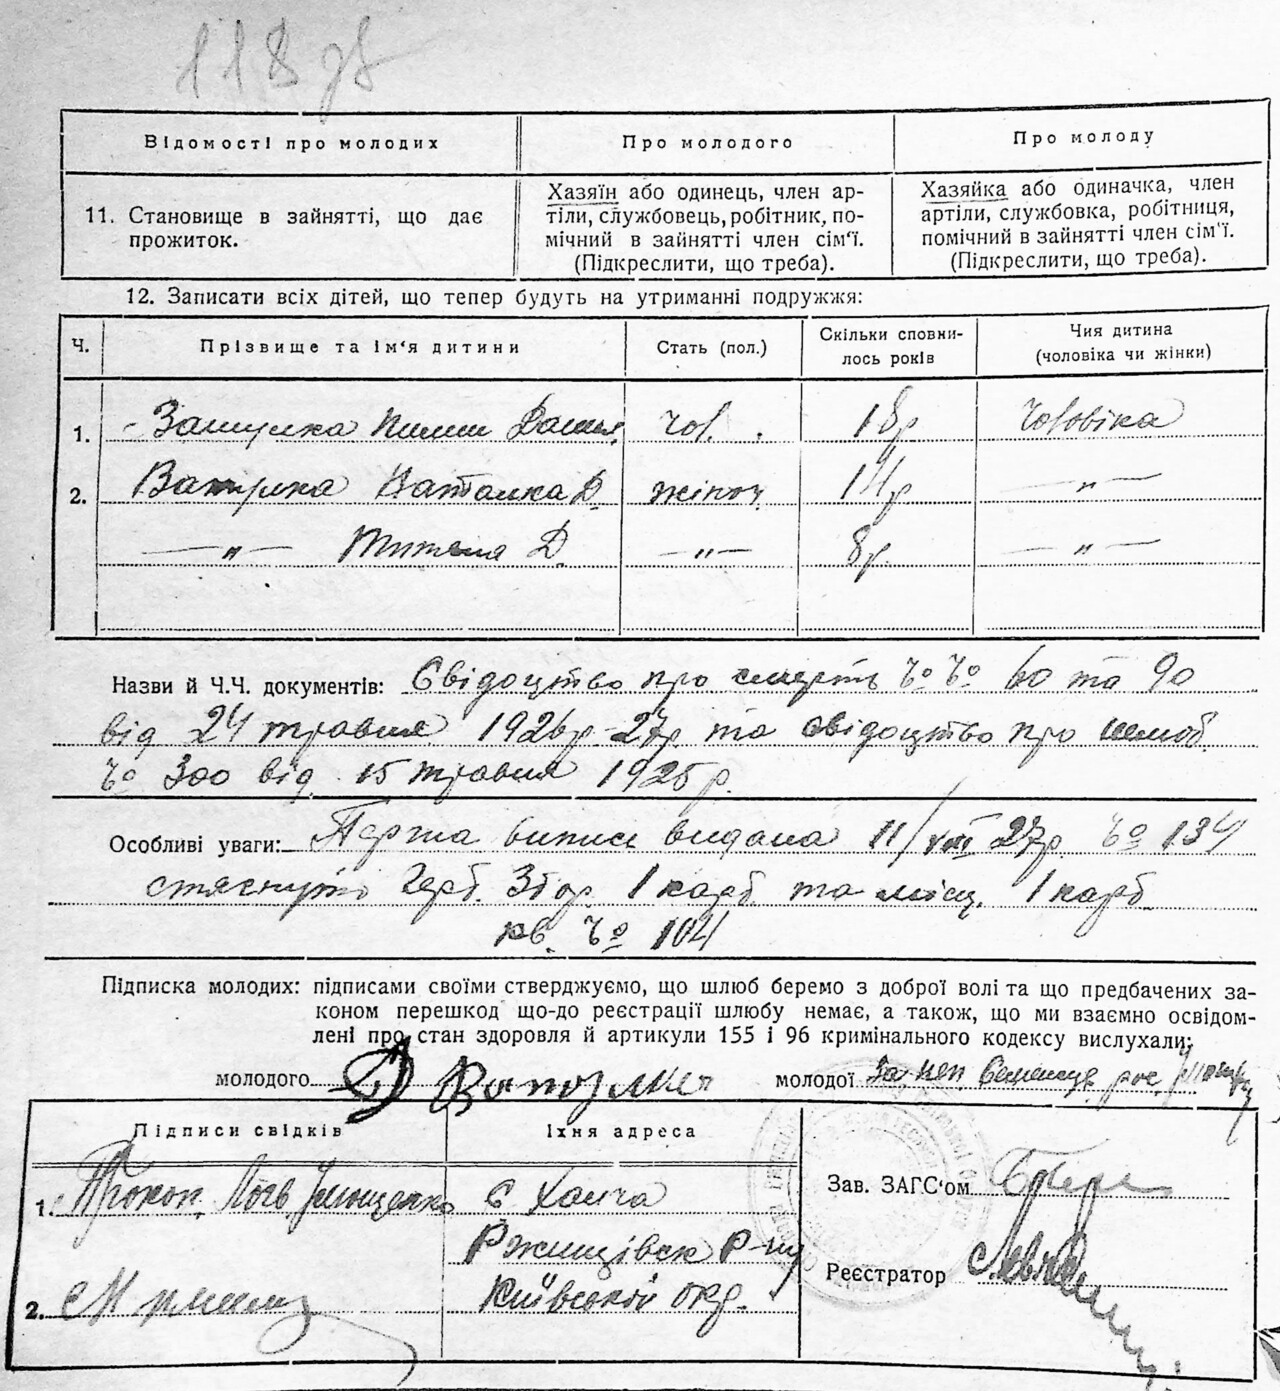 118 зв
Відомості про молодих
Про молодого
Про молоду
11. Становище в зайнятті, що дає прожиток.
Хазяїн або одинець, член ар-
тіли, службовець, робітник, по-
мічний в зайнятті член сім'ї.
(Підкреслити, що треба).
Хазяйка або одиначка, член
артіли, службовка, робітниця,
помічний в зайнятті член сім'ї.
(Підкреслити, що треба).
12. Записати всіх дітей, що тепер будуть на утриманні подружжя:
Ч. Прізвище та ім'я дитини Стать (пол.) Скільки сповни-лось років Чия дитина (чоловіка чи жінки)
1. чол. 18р чоловіка
2. Наталка Д. жіноч. 14р —„—
—„— Тетяна Д. —„— 8р. —„—
Назви й Ч.Ч. документів: Свідоцтво про смерть Чо Чо 60 та 90
від 24 травня 1926р-27р. та свідоцтво про шлюб
Чо 300 від 15 травня 1925р.
Особливі уваги: Перша випись видана 11/VIII 27р. Чо 134
стягнуто Герб. Збор. 1 карб. та місц. 1 карб.
кв. Чо 104
Підписка молодих: підписами своїми стверджуємо, що шлюб беремо з доброї волі та що предбачених за-
коном перешкод що-до реєстрації шлюбу немає, а також, що ми взаємно освідом-
лені про стан здоровля й артикули 155 і 96 кримінального кодексу вислухали:
молодого Д
молодої За неп.
Підписи свідків
Їхня адреса
1. Прокоп.
с Ханча
Ржищівськ Р-ну
2.
Київської окр.
Зав. ЗАГС'ом
Реєстратор